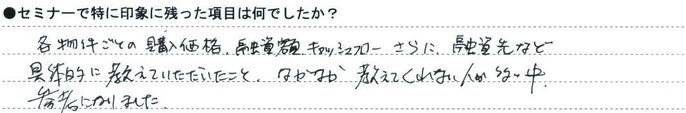 ●セミナーで特に印象に残った項目は何でしたか？
各物件ごとの購入価格、融資額、キャッシュフロー さらに、融資先など
具体的に教えていただいたこと、なかなか教えてくれない人が多い中、
参考になりました。